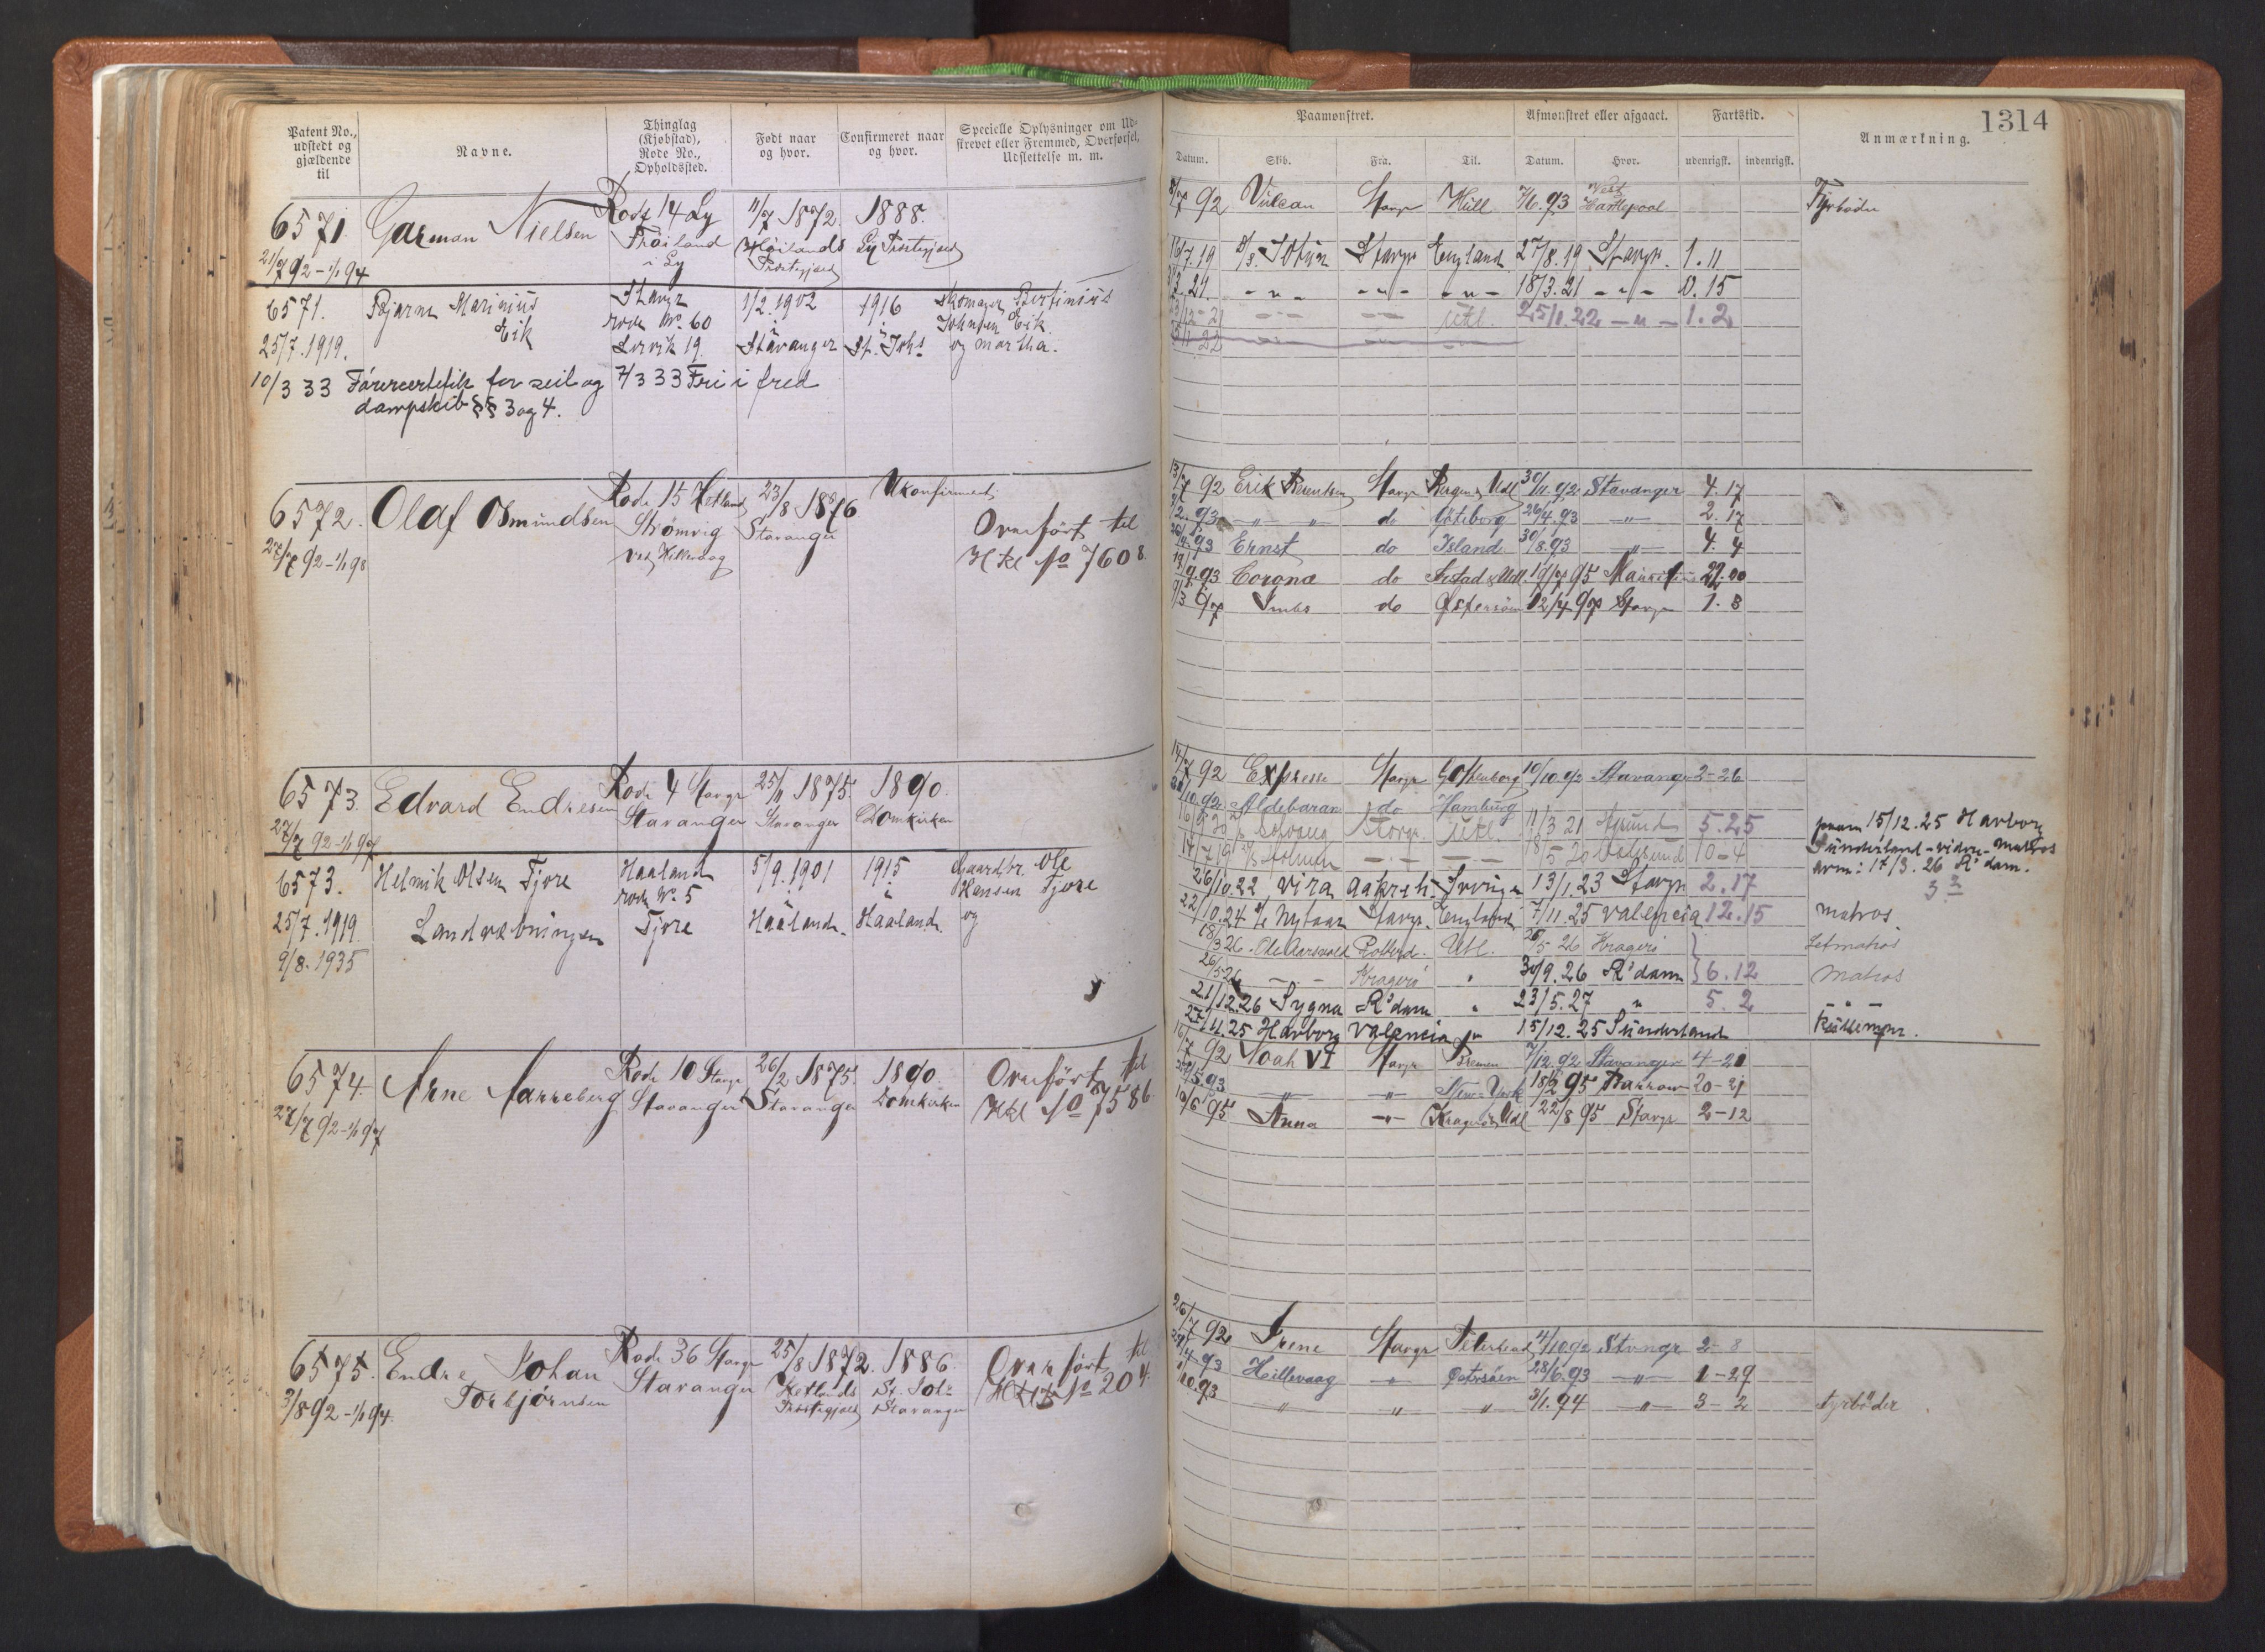 Patent No., udstedt og gjældende til
Navne.
Thinglag (Kjøbstad), Rode No., Opholdssted.
Født naar og hvor.
Confirmeret naar og hvor.
Specielle Oplysninger om Udskrevet eller Fremmed, Overførsel, Udslettelse m. m.
6571. Garman Nielsen Rode 14 Ly 11/7 1872. 1888.
Frøiland i Ly Høilands Præstegjæld Ly Præstegjæld
21/7 92 – 1/1 94
6571. Bjarne Marinius Eik Stavgr rode No. 60 1/2.1902 1916 Skomager Bertinius Johnsen Eik
25/7.1919. Lervik 19. Stavanger St. Johs og Martha.
10/3 33 Førercertifik for seil og 7/3 33 Fri i fred
dampskib §§ 3 og 4.
6572. Olaf Osmundsen Rode 15 Hetland 23/8 1876 Ukonfirmert.
Strømvig Stavanger Overført til
27/7 92 – 1/1 98 ved Hillevaag Hkl No 7608.
6573. Edvard Endresen Rode 4 Stavgr 25/11 1875. 1890.
Stavanger Stavanger Domkirken
27/7 92 – 1/1 97
6573. Helmik Olsen Tjore Haaland 5/9.1901 1915 Gaardbr. Ole
rode No. 5 i Hansen Tjore
25/7.1919 Landvæbningen Tjore Haaland. Haaland. og
9/8.1935
6574. Arne Aarreberg Rode 10 Stavgr 26/2 1875. 1890. Overført til
Stavanger Stavanger Domkirken Hkl No 7586
27/7 92 – 1/1 97
6575. Endre Johan Rode 36 Stavgr 25/8 1872. 1886. Overført til
Torbjørnsen Stavanger Hetlands Præstegjæld St. Petr Stavanger No 204.
3/8 92 – 1/1 94.
1314
Paamønstret.
Afmønstret eller afgaaet.
Fartstid.
Anmærkning.
Datum. Skib. Fra. Til. Datum. Hvor. udenrigsk. indenrigsk.
92 Vulcan Stavgr Hull 7/6.93 West Hartlepool Fyrbøder
16/7.19 Stavgr England 27/8.19 Stavgr. 1.11
3.21. – " – – " – – " – 18/3.21 – " – 0.15
Utl. 25/1.22 – " – 1.2
13/7 92 Erik Berentsen Stavgr Bergen & Udl 30/11.92 Stavanger 4.17
2.93 – " – " do Göteborg 26/4.93 – " – 2.17
26/4.93 Ernst do Island 30/8.93 – " – 4.4
19/9.93 Corona do 19/7 95 22.00
9/3 97 do Østersøen 12/4 97 Stavgr 1.3
14/7 92 Expresse Stavgr Gothenborg 10/10.92 Stavanger 2-26
10.92 Aldebaran do Hamburg
Solvang Stavgr. Utl. 11/3 21 5.25 paam 15/12.25 Havborg
Sünderland – viden – matros
17/7.19 10-4 avm: 17/3.26 R'dam.
26/10.22 Vira Aakreh. Sverige 13/1.23 Stavgr 2.17
22/10.24 Stavgr. England 7/11.25 Valencia 12.15 Matros
18/3 26. Ole Aarsvold Rotterd. Utl. 26/5 26 Kragerø Letmatros
26/5 26 – – Kragerø " 30/9.26 R'dam 6.12 Matros
21/12.26 Sygna R'dam " 23/5.27 " 5.2 – " –
27/11.25 Havborg Valencia 15/12.25 Sünderland Küllempr.
16/7 92 Noah VI Stavgr Bremen 7/12.92 Stavanger 4-21
5.93 – " – – " – New-York 18/2 95 Barrow 20-21
10/6 95 Anna – " – Kragerø & Udl 22/8 95 Stavgr 2-12
26/7 92 Irene Stavgr Peterhead 4/10.92 Stvngr 2-8
4.93 Hillevaag – " – Østersøen 28/6.93 – " – 1-29
10.93 – " – – " – – " – 3/1.94 – " – 3-2 Fyrbøder